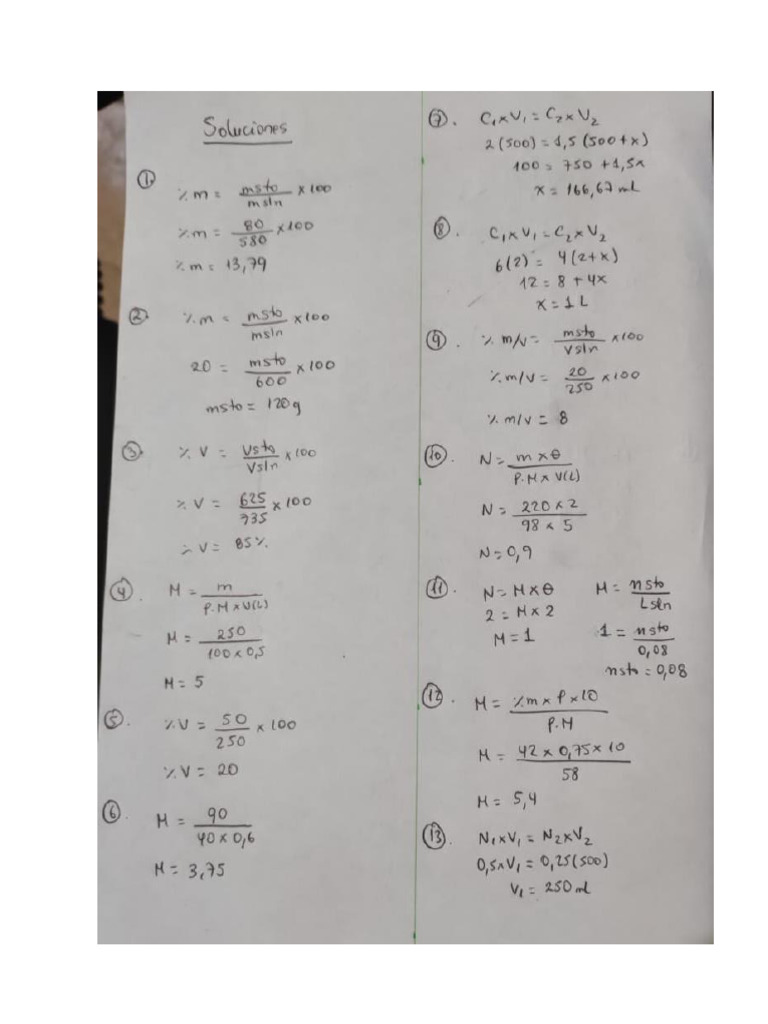 Soluciones
①
%m = msto/msln x 100
%m = 80/580 x 100
%m = 13,79
②.
%m = msto/msln x 100
20 = msto/600 x 100
msto = 120g
③.
%V = Vsto/Vsln x 100
%V = 625/735 x 100
%V = 85%
④.
M = m/P.M x V(L)
M = 250/100 x 0,5
M = 5
⑤.
%V = 50/250 x 100
%V = 20
⑥.
M = 90/40 x 0,6
M = 3,75
⑦.
C₁xV₁ = C₂xV₂
2(500) = 1,5(500+x)
100 = 750 + 1,5x
x = 166,67 ml
⑧.
C₁xV₁ = C₂xV₂
6(2) = 4(2+x)
12 = 8 + 4x
x = 1 L
⑨.
% m/v = msto/Vsln x 100
% m/v = 20/250 x 100
% m/v = 8
⑩.
N = m x θ/P.M x V(L)
N = 220 x 2/98 x 5
N = 0,9
⑪.
N = M x θ M = nsto/Lsln
2 = M x 2
M = 1 1 = nsto/0,08
nsto = 0,08
⑫.
M = %m x P x 10/P.M
M = 42 x 0,75 x 10/58
M = 5,4
⑬.
N₁xV₁ = N₂xV₂
0,5xV₁ = 0,25(500)
V₁ = 250 ml